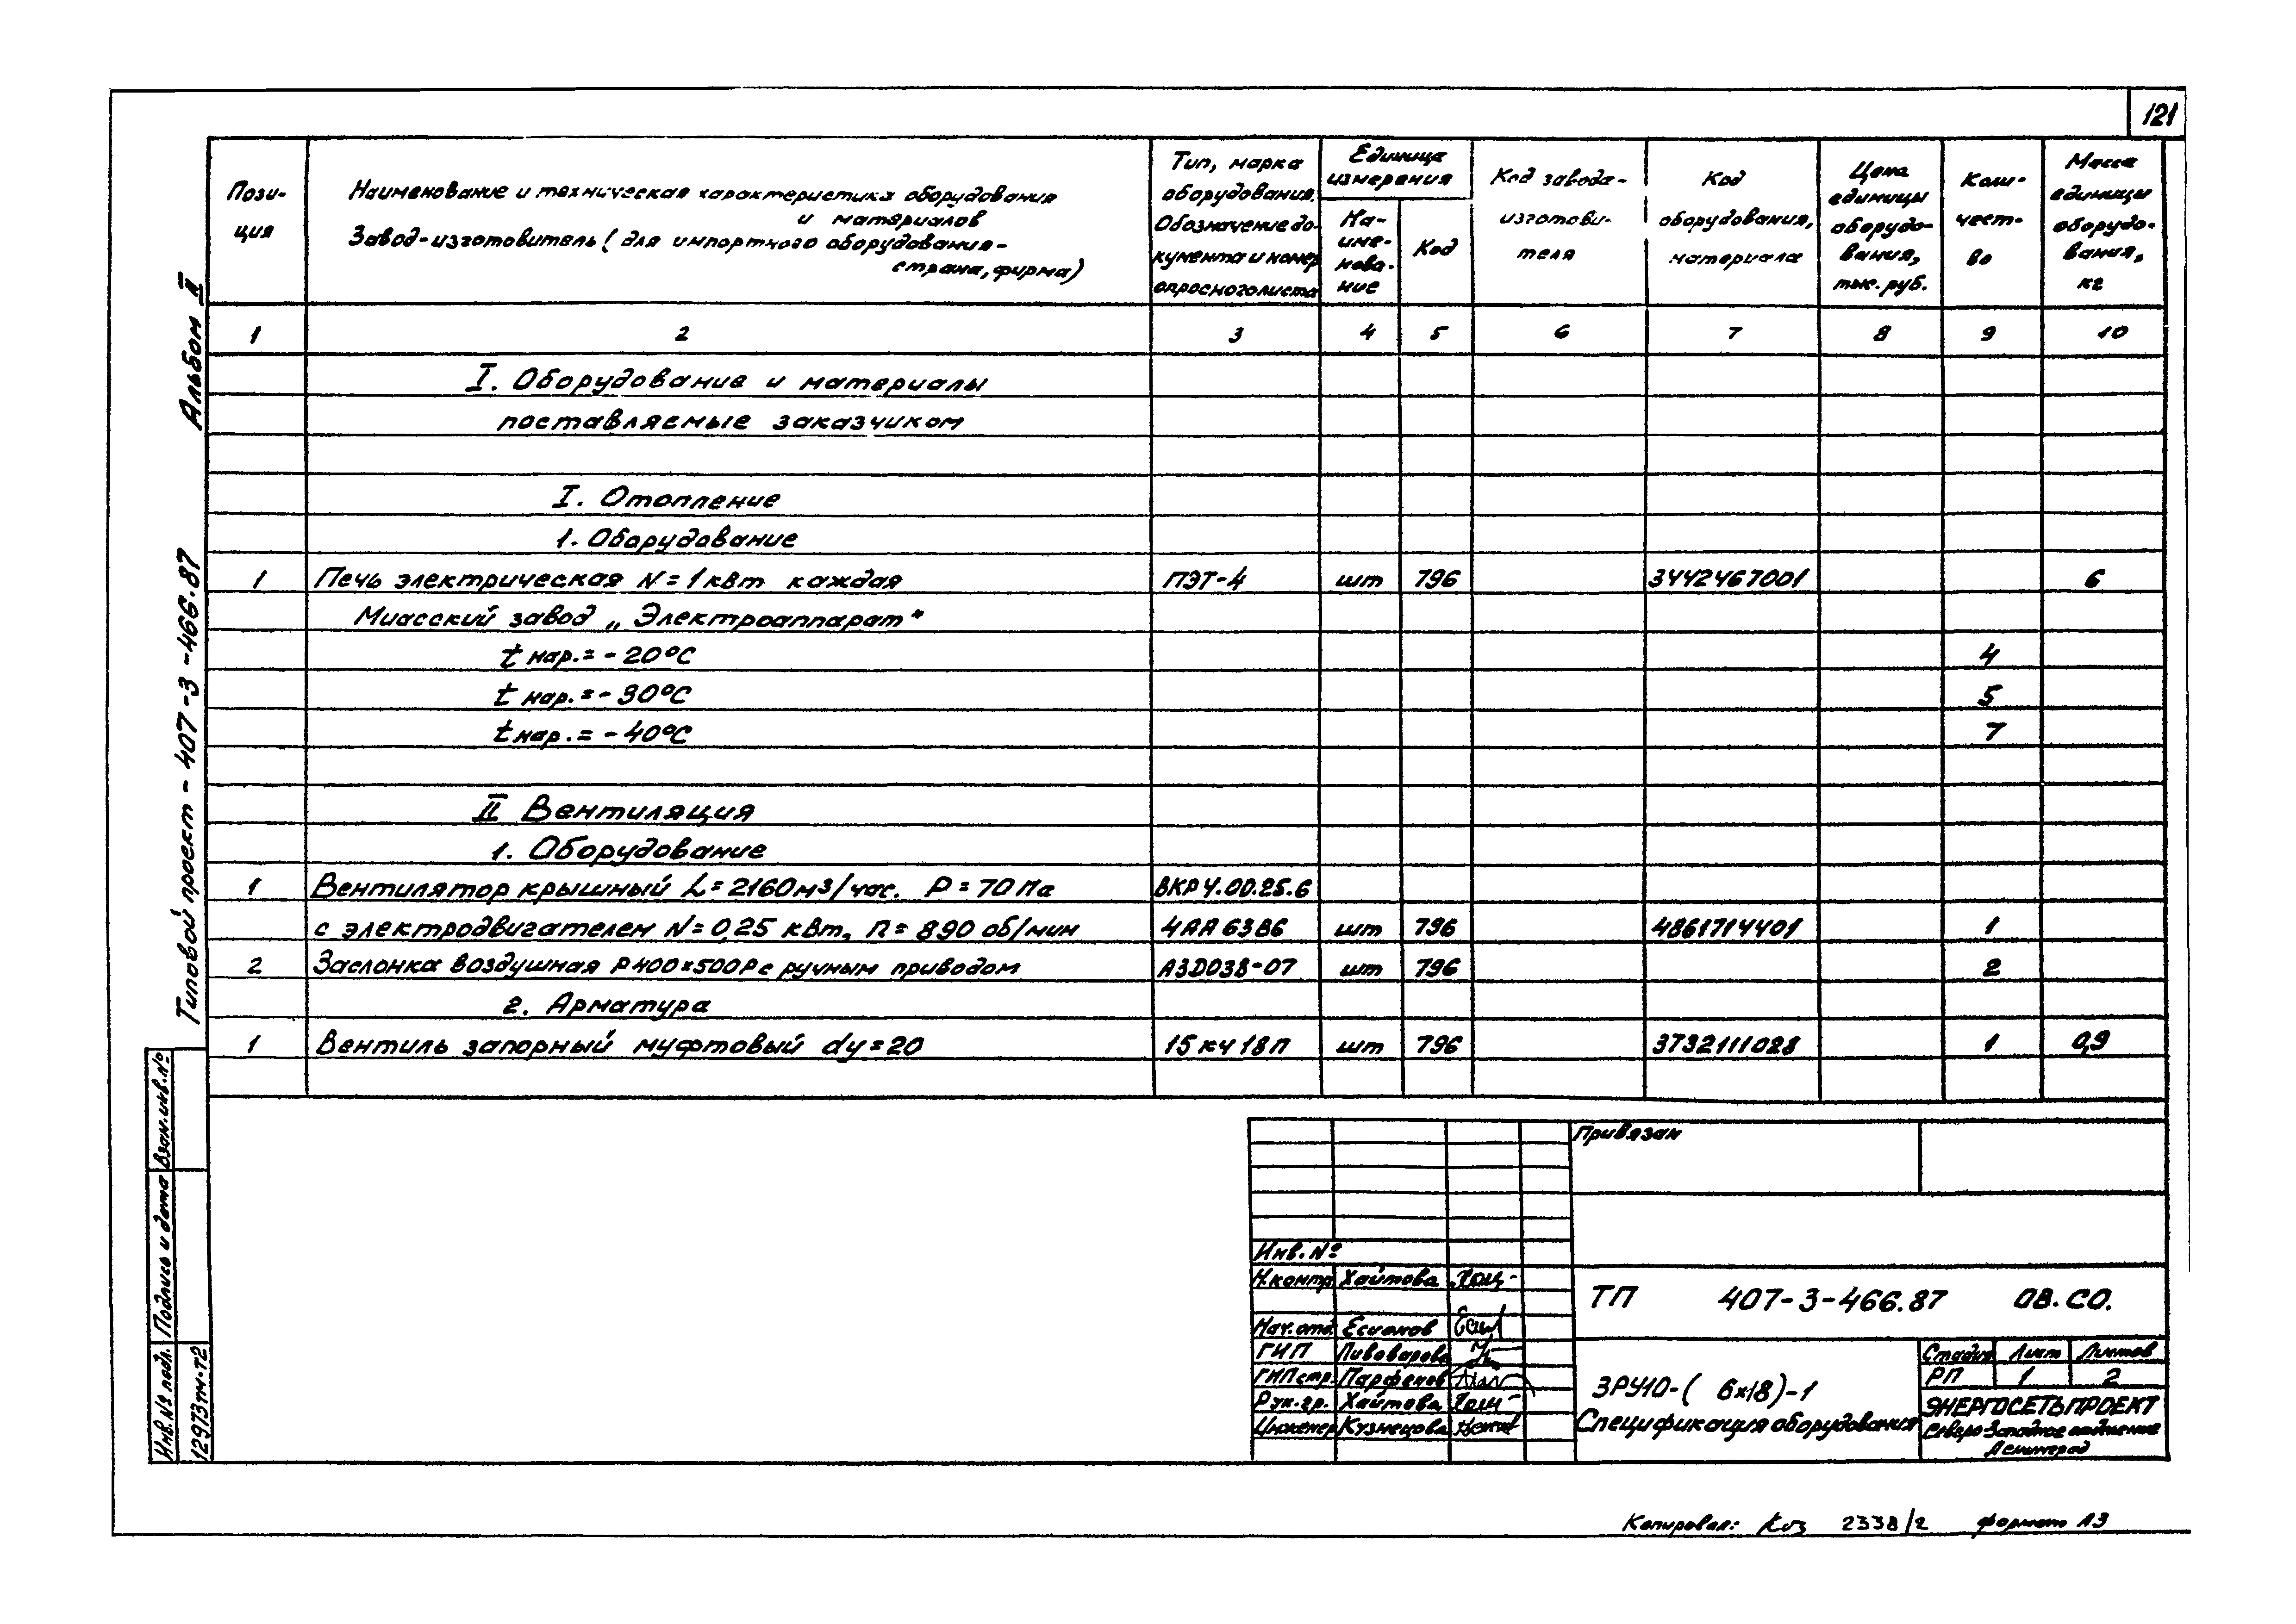 121
Пози-
ция
Наименование и техническая характеристика оборудования
и материалов
Завод-изготовитель (для импортного оборудования-
страна, фирма)
Тип, марка
оборудования.
Обозначение до-
кумента и номер
опросного листа
Единица
измерения
На-
име-
нова-
ние
Код
Код завода-
изготови-
теля
Код
оборудования,
материала
Цена
единицы
оборудо-
вания,
тыс. руб.
Коли-
чест-
во
Масса
единицы
оборудо-
вания,
кг
1 2 3 4 5 6 7 8 9 10
I. Оборудование и материалы
поставляемые заказчиком
I. Отопление
1. Оборудование
1 Печь электрическая N=1квт каждая ПЭТ-4 шт 796 3442467001 6
Миасский завод „Электроаппарат"
t нар.=-20°С 4
t нар.=-30°С 5
t нар.=-40°С 7
II Вентиляция
1. Оборудование
1 Вентилятор крышный L=2160м3/час. P=70Па ВКР4.00.25.6
с электродвигателем N=0,25 кВт, n=890 об/мин 4АА63В6 шт 796 4861714401 1
2 Заслонка воздушная Р400×500Р с ручным приводом АЗД038-07 шт 796 2
2. Арматура
1 Вентиль запорный муфтовый dy=20 15кч18п шт 796 3732111028 1 0,9
Альбом II
Типовой проект - 407-3-466.87
Взам.инв.№
Подпись и дата
Инв.№ подл.
12973тм-т2
Привязан
Инв.№
Н.контр. Хаитова
Нач.отд.
ГИП Пивоварова
ГИП стр. Парфенов
Рук.гр. Хаитова
Инженер Кузнецова
ТП 407-3-466.87 ОВ.СО.
ЗРУ10-(6×18)-1
Спецификация оборудования
Стадия Лист Листов
РП 1 2
ЭНЕРГОСЕТЬПРОЕКТ
Северо-Западное отделение
Ленинград
Копировал: 2338/2 формат А3